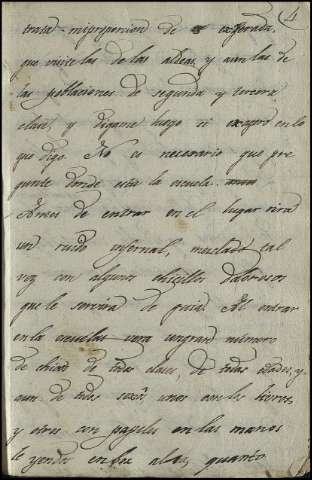 4
tratar mi proporcion de exagerada,
que visite las de las aldeas, y aun las de
las poblaciones de segunda y tercera
clase, y digame luego si exagero en lo
que digo. No es necesario que pre
gunte donde esta la escuela.
Antes de entrar en el lugar oirá
un ruido infernal, mezclado tal
vez con algunos chicillos dolorosos
que le servira de guia. Al entrar
en la escuela vera un gran numero
de chicos de todas clases, de todas edades, y
aun de dos sexos unos con los libros,
y otros con papeles en las manos
leyendo en voz alta, quanto